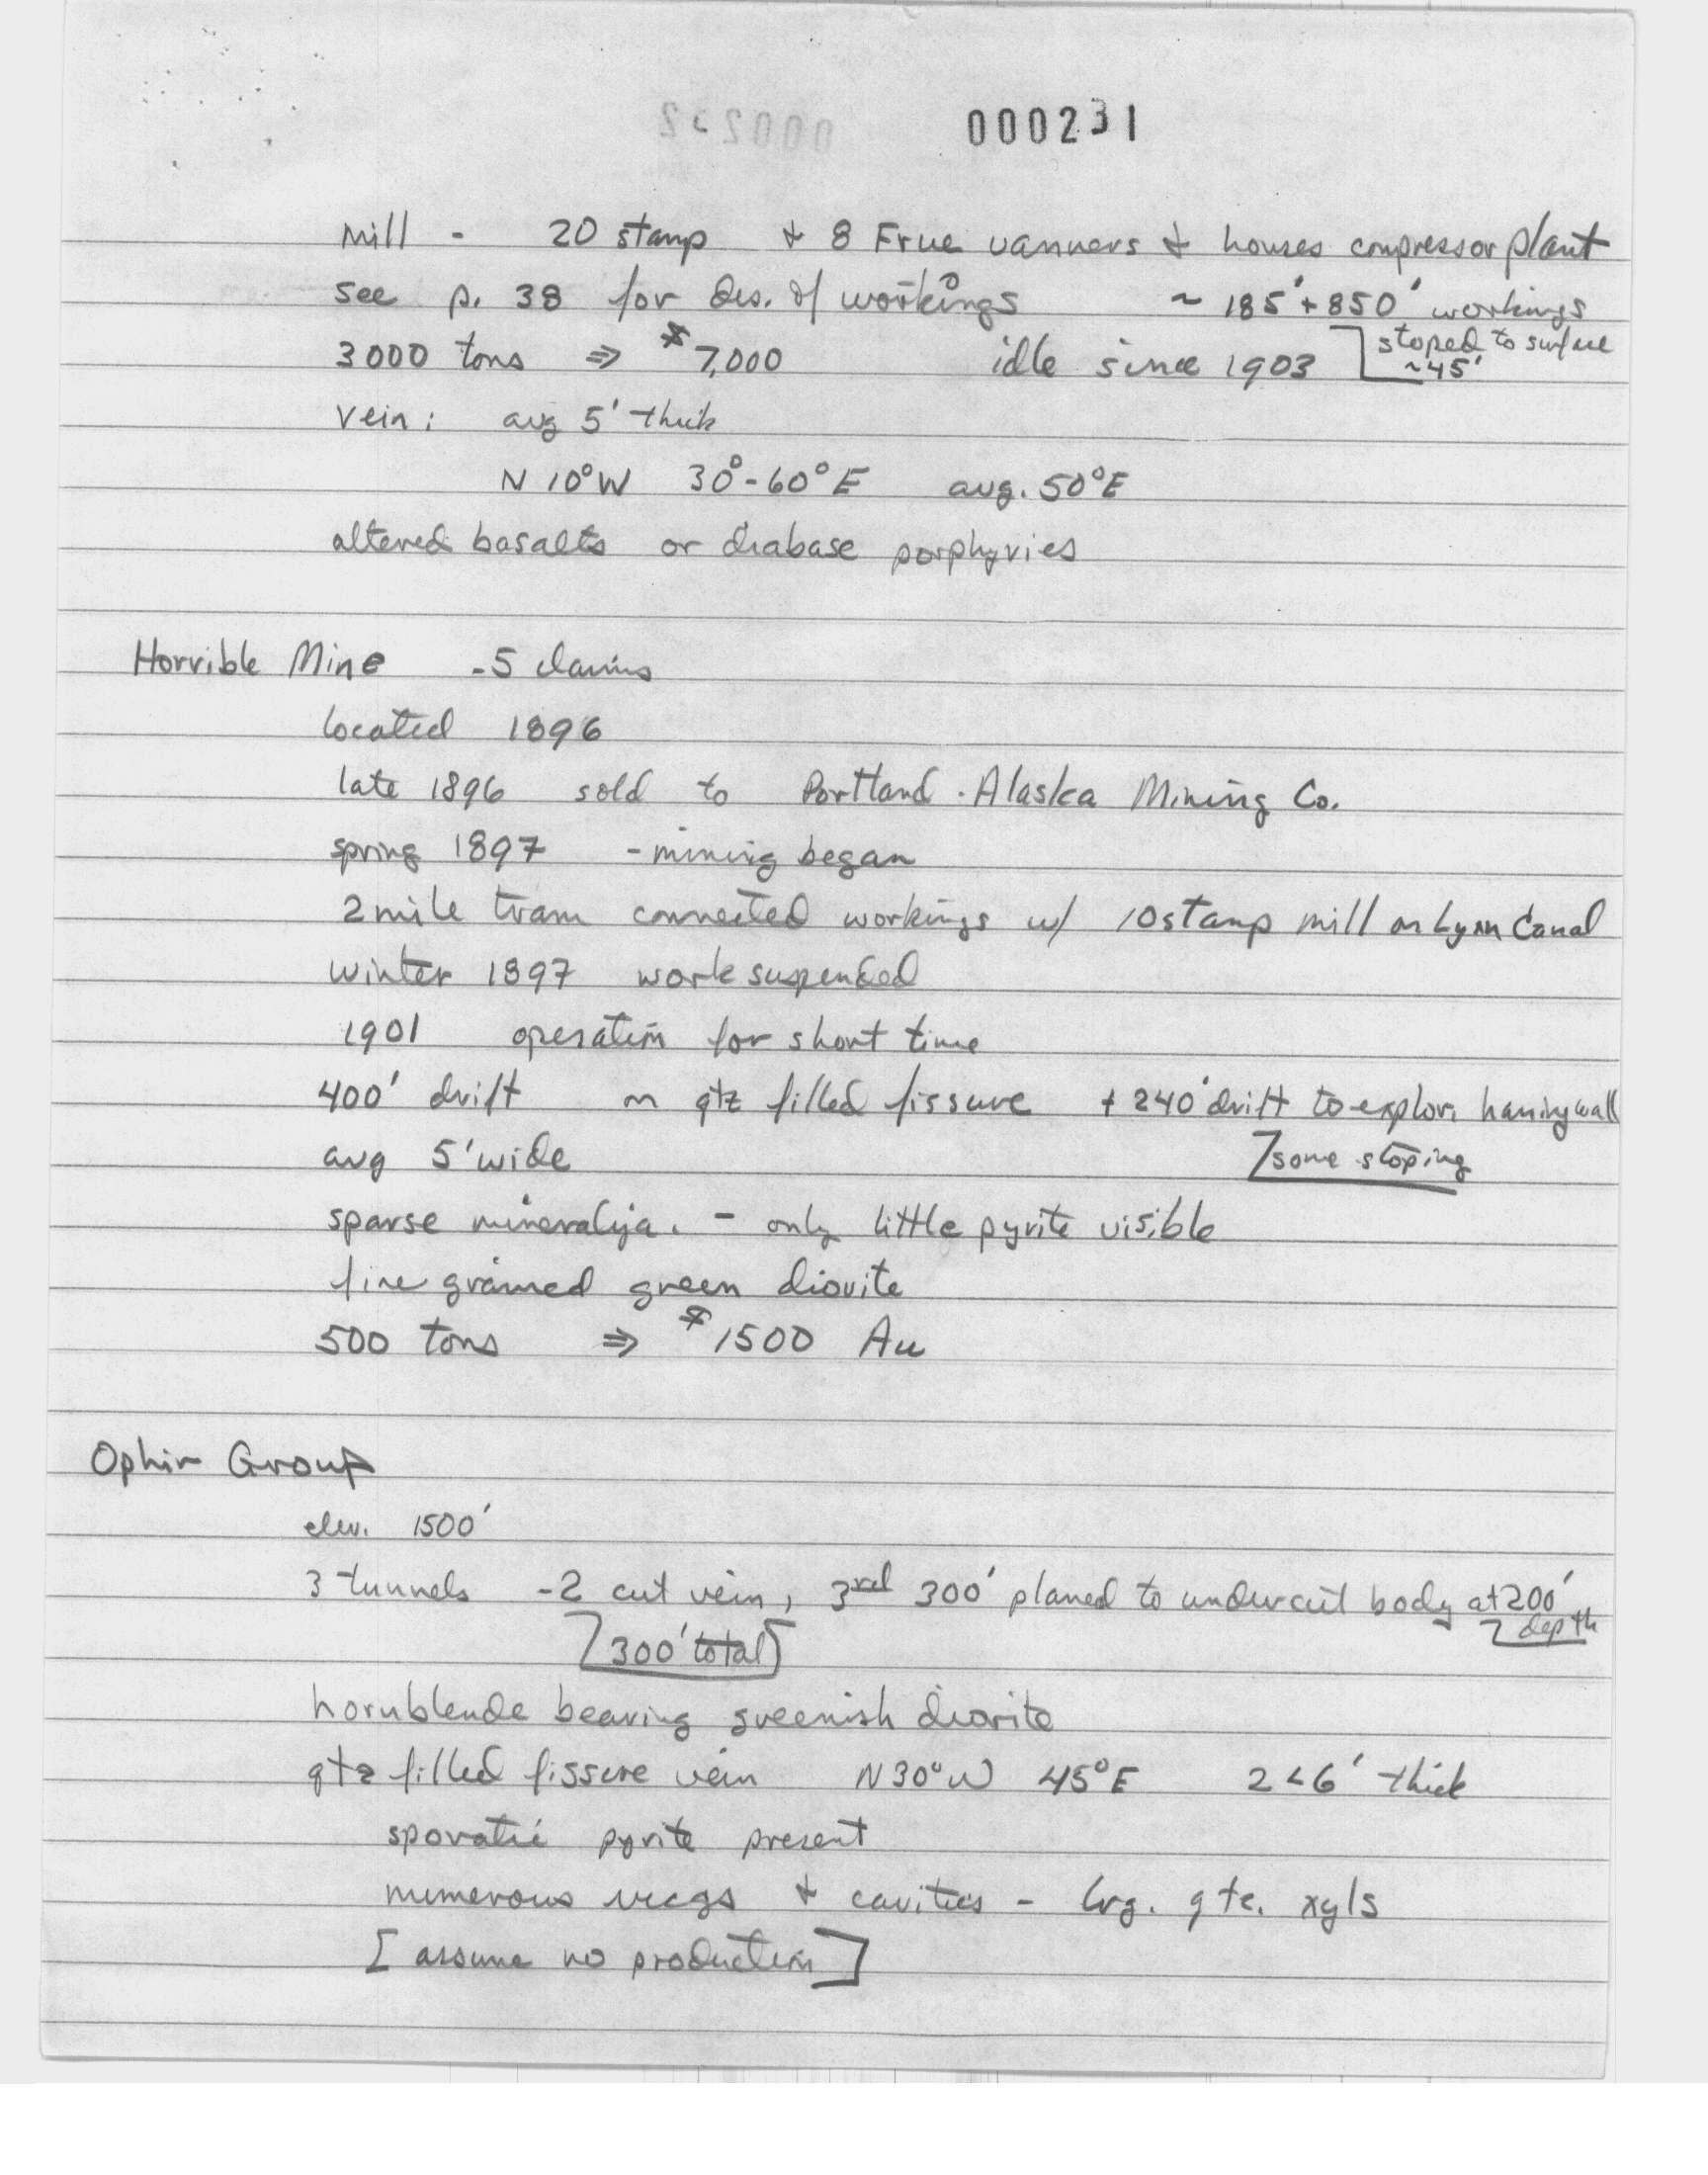 000231
Mill - 20 stamp + 8 Frue vanners + houses compressor plant
see p. 38 for des. of workings ~ 185' + 850' workings
3000 tons ⇒ $7,000 idle since 1903 [stoped to surface ~45'
vein: avg 5' thick
N 10°W 30°-60°E avg. 50°E
altered basalts or diabase porphyries
Horrible Mine - 5 claims
located 1896
late 1896 sold to Portland-Alaska Mining Co.
spring 1897 - mining began
2 mile tram connected workings w/ 10 stamp mill on Lynn Canal
winter 1897 work suspended
1901 operation for short time
400' drift on qtz filled fissure + 240' drift to explor. haningwall
avg 5' wide [some stoping
sparse mineraliza. - only little pyrite visible
fine grained green diorite
500 tons ⇒ $1500 Au
Ophir Group
elev. 1500'
3 tunnels - 2 cut vein, 3rd 300' planed to undercut body at 200' depth
[300' total]
hornblende bearing greenish diorite
qtz filled fissure vein N30°W 45°E 2<6' thick
sporatic pyrite present
numerous vugs + cavities - lrg. qtz. xyls
[assume no production]